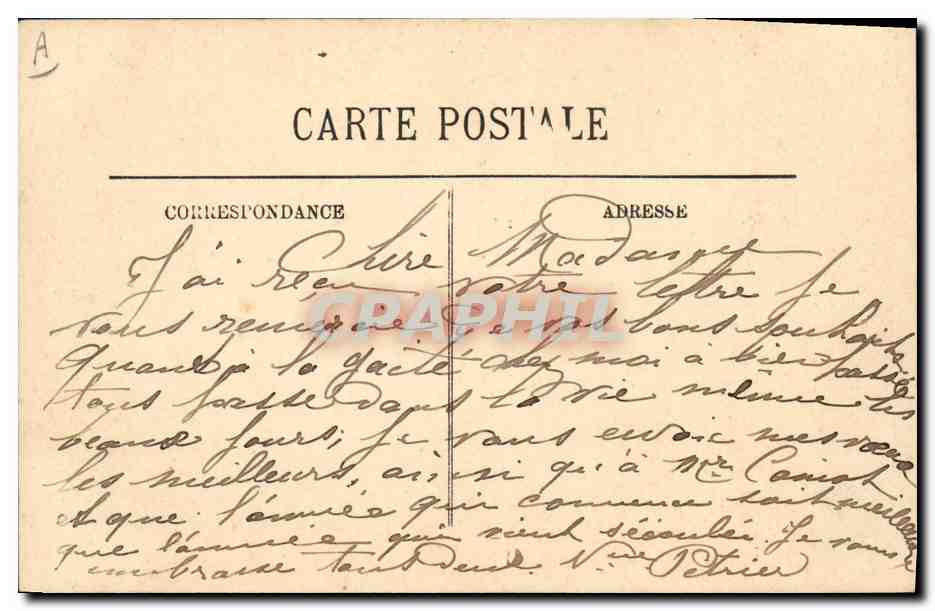 A
CARTE POSTALE
CORRESPONDANCE
ADRESSE
Chère Madame
J'ai reçu votre lettre je
vous remercie de vos bons souhaits
quand à la gaité chez moi à bien passée
tout passe dans la vie même les
beaux jours, je vous envoie mes vœux
les meilleurs, ainsi qu'à Mr
et que l'année qui commence soit meilleure
que l'année qui vient s'écouler. Je vous
embrasse tous deux. Vve Petrier
CPAPHIL